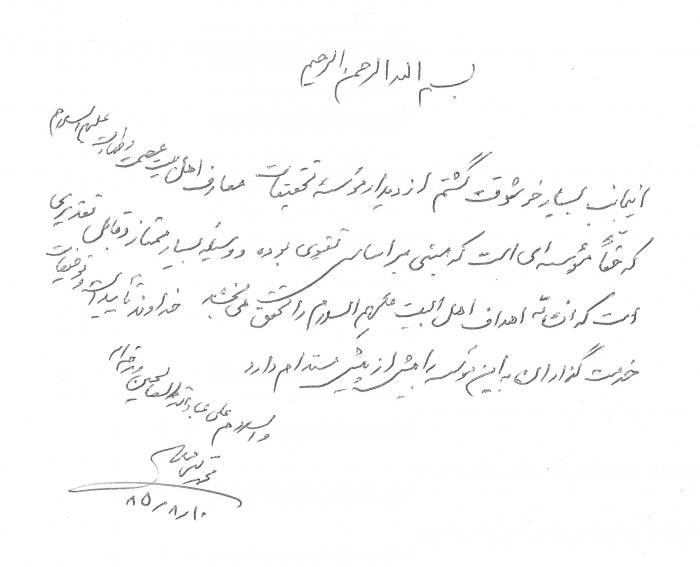 بسم الله الرحمن الرحیم
اینجانب بسیار خوشوقت گشتم از دیدار مؤسسهٔ تحقیقات معارف اهل بیت عصمت و طهارت علیهم السلام
که حقّاً مؤسسه‌ای است که مبتنی بر اساس تقوی بوده و وسیلهٔ بسیار ممتاز و قابل تقدیری
است که انشاءالله اهداف اهل البیت علیهم السلام را تحقق می‌بخشد خداوند تأییدات و توفیقات
خدمت گذاران به این مؤسسه را بیش از پیش مستدام دارد
والسلام علی عباد الله الصالحین و رحمة الله
محمد تقی
۸۵/۸/۱۰